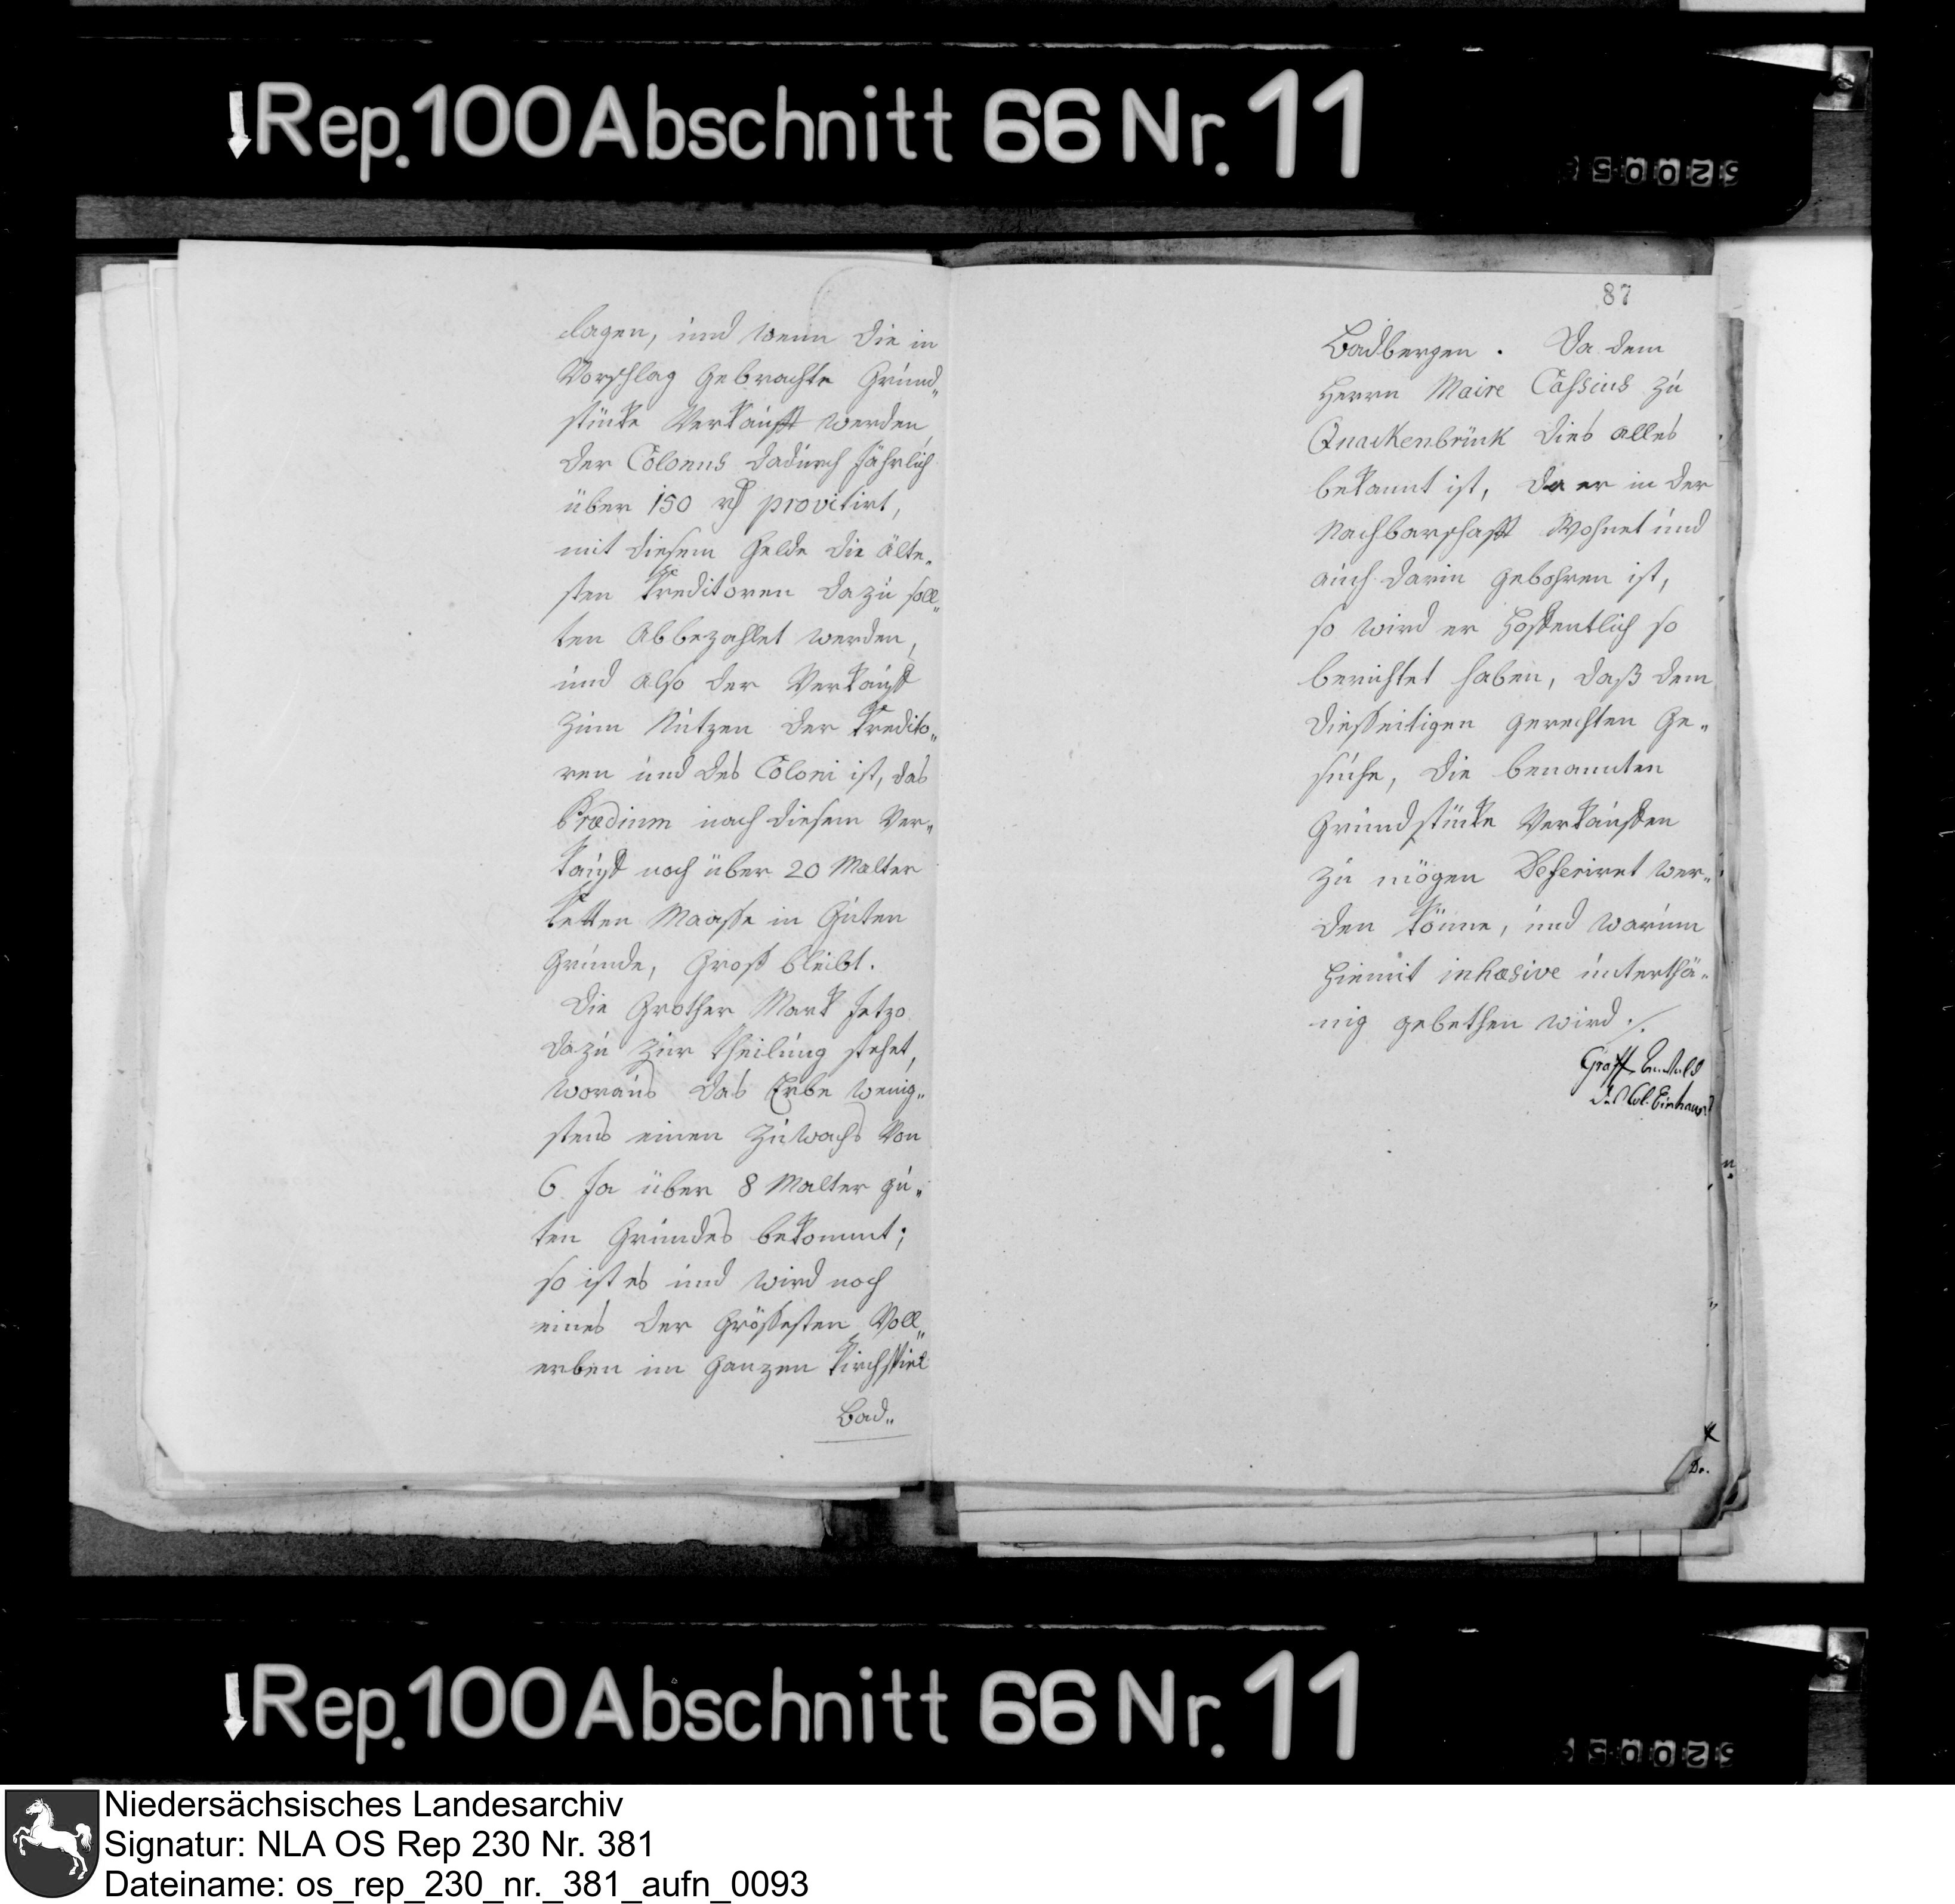 Rep. 100 Abschnitt 66 Nr. 11
lagen, und wenn die in
Vorschlag gebrachte Grund„
stücke Verkauft werden,
der Colonus dadurch jährlich
über 150 rth provitirt,
mit diesem Gelde die älte„
sten Kreditoren dazu soll„
ten abbezahlet werden,
und also der Verkauf
zum Nutzen der Kredito„
ren und des Coloni ist, das
Prædium nach diesem Ver„
kauf noch über 20 Malter
fetten Maasse in Guten
Grunde, Groß bleibt.
Die Grother Mark jetzo
dazu zur theilung stehet,
woraus das Erbe wenig„
stens einen Zuwachs von
6 Ja über 8 Malter gu„
ten Grundes bekommt;
so ist es und wird noch
eines der Grössesten Voll„
erben im ganzen Kirchspiel
Bad„
87
Badbergen. Da dem
Herrn Maire Cassius zu
Quackenbrück dies alles
bekannt ist, da er in der
Nachbarschaft Wohnet und
auch darin gebohren ist,
so wird er Hoffentlich so
berichtet haben, daß dem
diesseitigen gerechten Ge„
suche, die benannten
Grundstücke Verkaufen
zu mögen Deferiret wer„
den könne, und warum
hiemit inhæsive unterthä„
nig gebethen wird ./.
Graff
Col.
Rep. 100 Abschnitt 66 Nr. 11
Niedersächsisches Landesarchiv
Signatur: NLA OS Rep 230 Nr. 381
Dateiname: os_rep_230_nr._381_aufn_0093